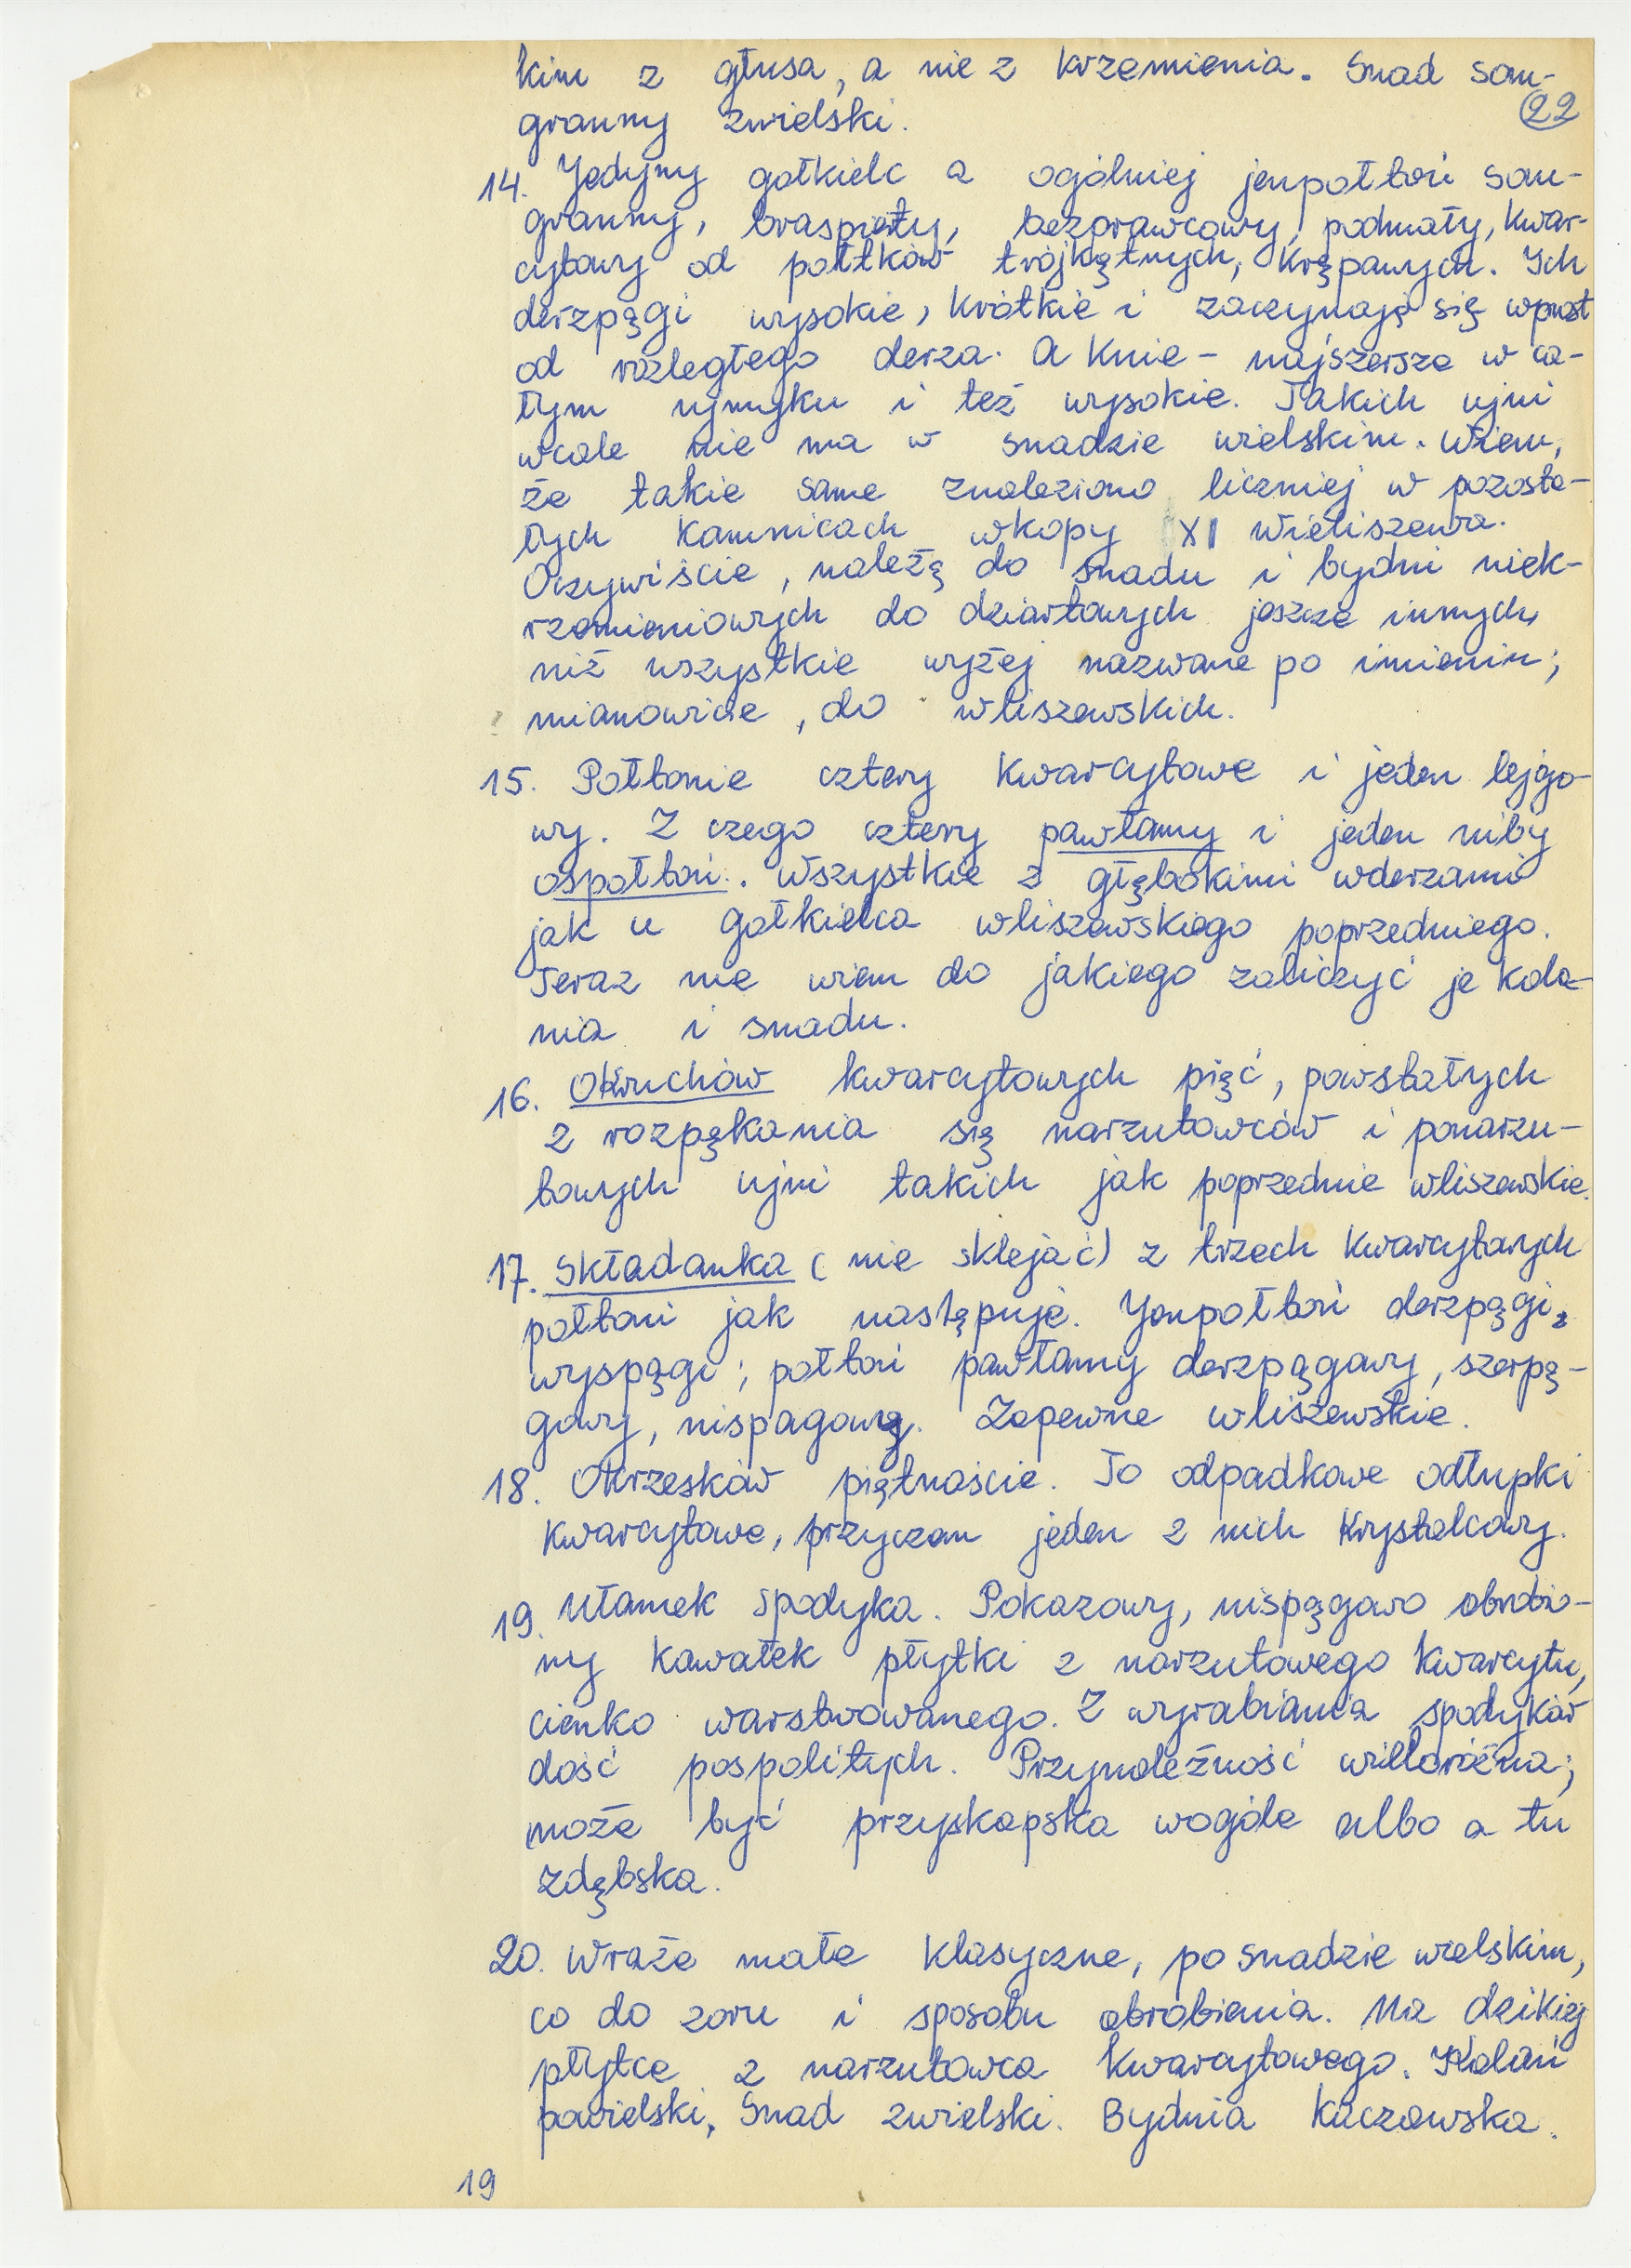 kim z głusa, a nie z krzemienia. Snad som-
22
granny zwielski.
14. Jedyny gołkielc a ogólniej jenpołtoń som-
granny, braspięty, bezprawcowy, podmały, kwar-
cytowy od połtków trójkątnych, krępawych. Ich
derzpągi wysokie, krótkie i zaczynają się wprost
od rozległego derza. A knie - najszersze w ca-
łym ujmyku i też wysokie. Takich ujni
wcale nie ma w snadzie wielskim. Wiem,
że takie same znaleziono liczniej w pozosta-
łych kamnicach wkopy XI Wieliszewa.
Oczywiście, należą do snadu i bydni niek-
rzemieniowych do dziartowych jeszcze innych,
niż wszystkie wyżej nazwane po imieniu;
mianowicie, do wliszewskich.
15. Połtonie cztery kwarcytowe i jeden lejgo-
wy. Z czego cztery pawłamy i jeden niby
ospołtoń. Wszystkie z głębokimi wderzami
jak u gołkielca wliszewskiego poprzedniego.
Teraz nie wiem do jakiego zaliczyć je kola-
nia i snadu.
16. Okruchów kwarcytowych pięć, powstałych
z rozpękania się narzutowców i ponarzu-
towych ujni takich jak poprzednie wliszewskie.
17. Składanka (nie sklejać) z trzech kwarcytowych
połtoni jak następuje. Jenpołtoń derzpągi,
wyspągi; połtoń pawłamy derzpągawy, szerpą-
gawy, nispągawy. Zapewne wliszewskie.
18. Okrzesków piętnaście. To odpadkowe odłupki
kwarcytowe, przyczem jeden z nich kryształcowy.
19. Ułamek spodyka. Pokazowy, nispągawo obrobio-
ny kawałek płytki z narzutowego kwarcytu,
cienko warstwowanego. Z wyrabiania spodyków
dość pospolitych. Przynależność wieloróżna;
może być przyskapska wogóle albo a tu
zdębska.
20. Wraże małe klasyczne, po snadzie wielskim,
co do zoru i sposobu obrobienia. Na dzikiej
płytce z narzutowca kwarcytowego. Kolań
powielski. Snad zwielski. Bydnia kaczowska.
19